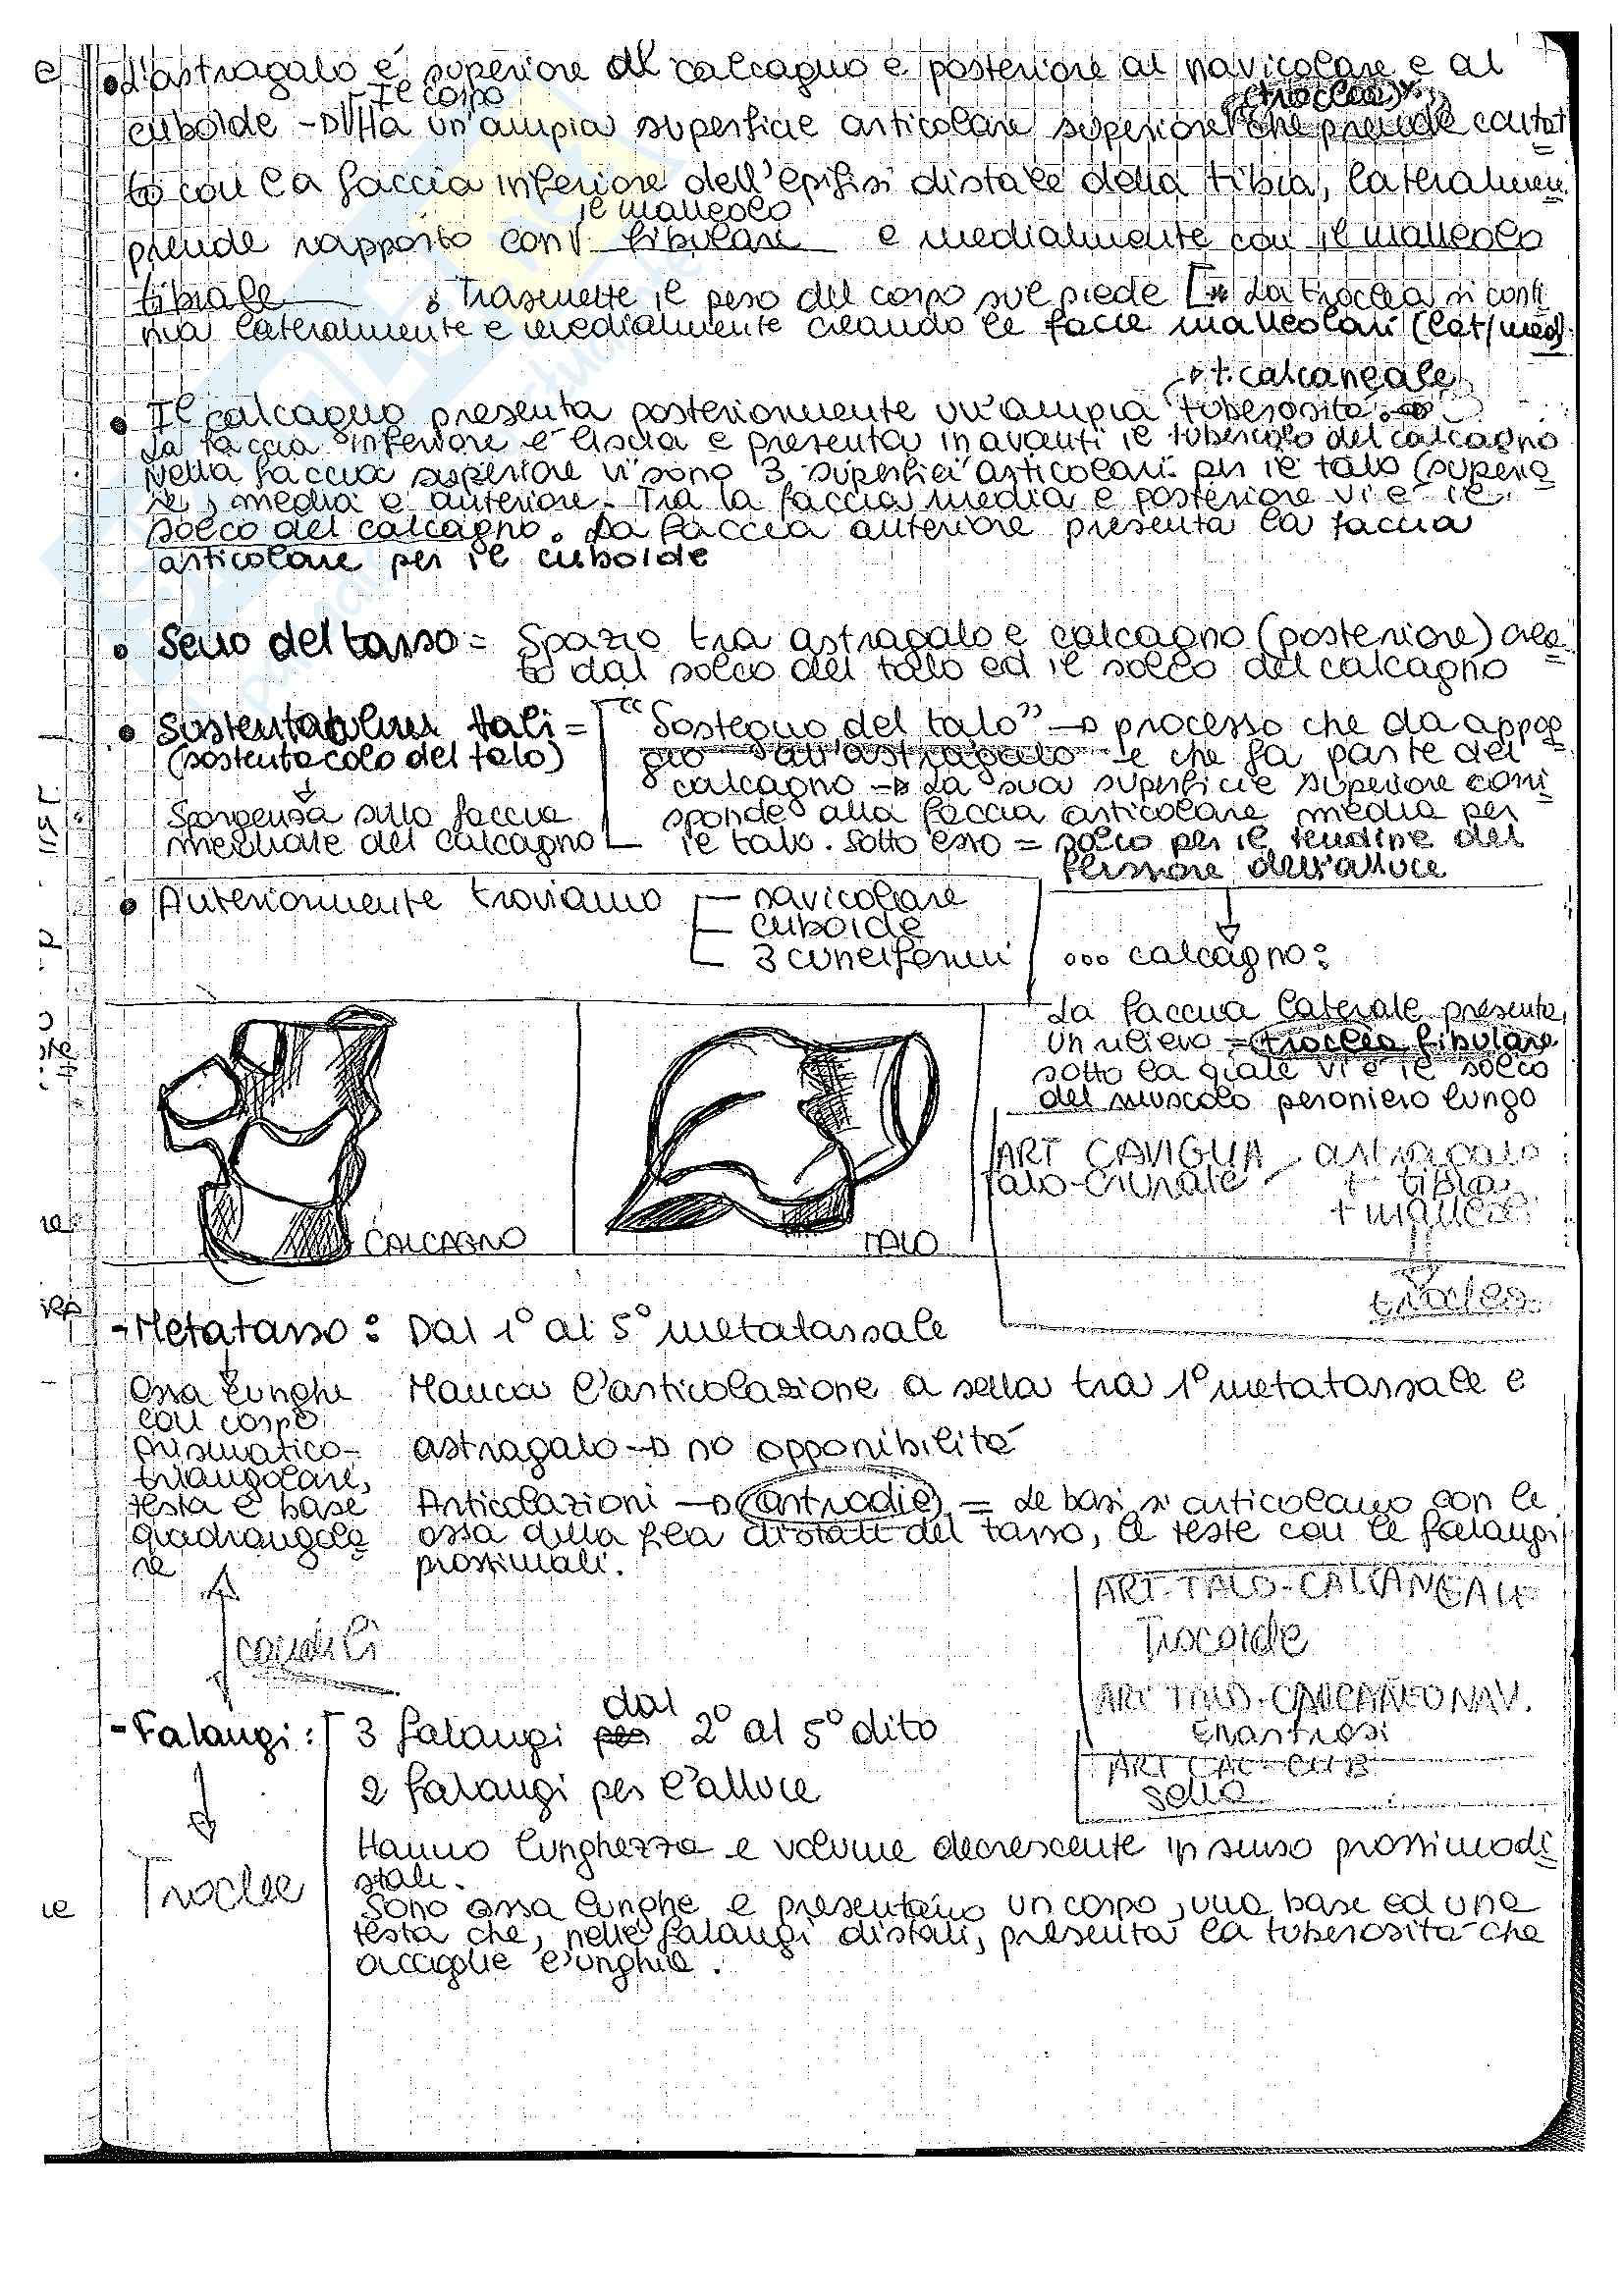 • L'astragalo è superiore al calcagno e posteriore al navicolare e al
Il corpo
(troclea)*
cuboide → Ha un'ampia superficie articolare superiore che prende contat
to con la faccia inferiore dell'epifisi distale della tibia, lateralmen.
il malleolo
prende rapporto con fibulare e medialmente con il malleolo
tibiale. Trasmette il peso del corpo sul piede [* La troclea si conti
nua lateralmente e medialmente creando le facce malleolari (lat/med).
→ t. calcaneale
• Il calcagno presenta posteriormente un'ampia tuberosità.
La faccia inferiore è liscia e presenta in avanti il tubercolo del calcagno
Nella faccia superiore vi sono 3 superfici articolari per il talo (superio
re, media e anteriore. Tra la faccia media e posteriore vi è il
solco del calcagno. La faccia anteriore presenta la faccia
articolare per il cuboide
• Seno del tarso = Spazio tra astragalo e calcagno (posteriore) crea
to dal solco del talo ed il solco del calcagno
• Sustentaculum tali = "Sostegno del talo" → processo che da appog
(sostentacolo del talo) gio all'astragalo e che fa parte del
calcagno → La sua superficie superiore corri
Sporgenza sulla faccia sponde alla faccia articolare media per
mediale del calcagno il talo. Sotto esso = solco per il tendine del
flessore dell'alluce
• Anteriormente troviamo navicolare
cuboide
3 cuneiformi
... calcagno:
La faccia laterale presenta
un rilievo = troclea fibulare
sotto la quale vi è il solco
del muscolo peroniero lungo
ART CAVIGLIA astragalo
Talo-crurale + tibia
+ malleoli
troclea
CALCAGNO
TALO
- Metatarso: Dal 1° al 5° metatarsale
Ossa lunghe Manca l'articolazione a sella tra 1° metatarsale e
con corpo
prismatico- astragalo → no opponibilità
triangolari,
testa e base Articolazioni → artrodie = Le basi si articolano con le
quadrangola ossa della fila distale del tarso, le teste con le falangi
re prossimali.
condili
ART-TALO-CALCANEALE
Trocoide
ART TALO-CALCANEONAV.
Enartrosi
ART CAL-CUB
Sella
dal
- Falangi: 3 falangi per 2° al 5° dito
2 falangi per l'alluce
Troclee
Hanno lunghezza e volume decrescente in senso prossimodi
stale.
Sono ossa lunghe e presentano un corpo, una base ed una
testa che, nelle falangi distali, presenta la tuberosità che
accoglie l'unghia.